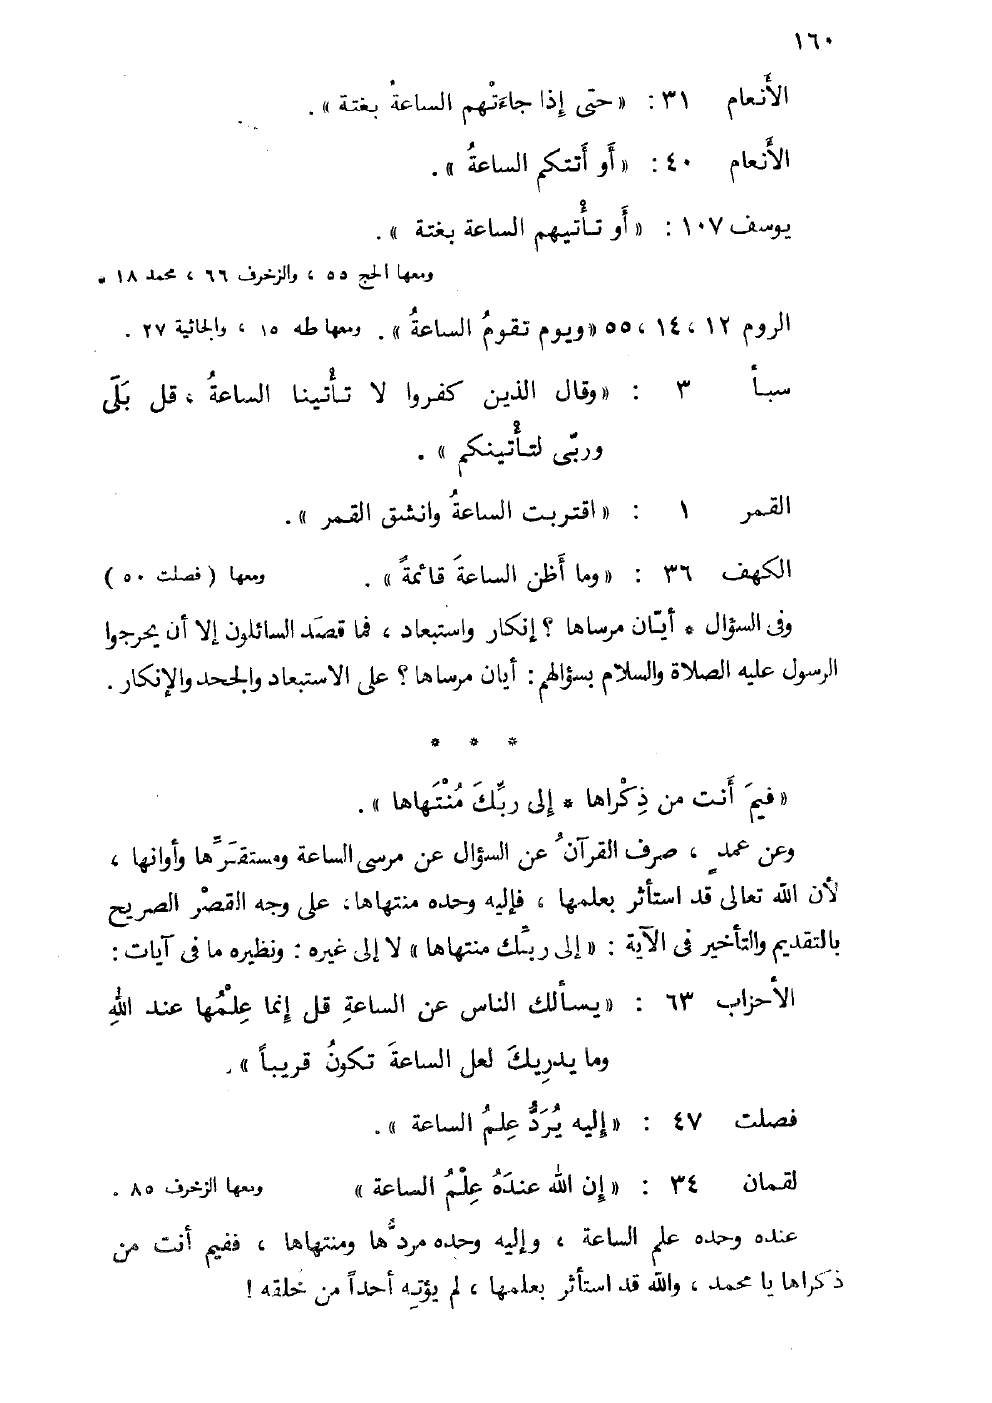 ١٦٠
الأَنعام ٣١ : « حتى إِذا جاءَتْهم الساعةُ بغتة » .
الأَنعام ٤٠ : « أَو أَتتكم الساعةُ » .
يوسف ١٠٧ : « أَو تأْتيهم الساعة بغتة » .
ومعها الحج ٥٥ ، والزخرف ٦٦ ، محمد ١٨ .
الروم ١٢ ، ١٤ ، ٥٥ « ويوم تقومُ الساعةُ » . ومعها طه ١٥ ، والجاثية ٢٧ .
سبأ ٣ : « وقال الذين كفروا لا تأْتينا الساعةُ ، قل بَلَى
وربّى لتأْتينكم » .
القمر ١ : « اقتربت الساعةُ وانشق القمر » .
الكهف ٣٦ : « وما أَظن الساعةَ قائمةً » . ومعها ( فصلت ٥٠ )
وفى السؤال * أيّان مرساها ؟ إنكار واستبعاد ، فما قصَد السائلون إلا أن يحرجوا
الرسول عليه الصلاة والسلام بسؤالهم : أيان مرساها ؟ على الاستبعاد والجحد والإنكار .
* * *
« فيمَ أَنت من ذِكْراها * إِلى ربِّكَ مُنْتَهاها » .
وعن عمدٍ ، صرف القرآنُ عن السؤال عن مرسى الساعة ومستقَرِّها وأوانها ،
لأن الله تعالى قد استأثر بعلمها ، فإليه وحده منتهاها ، على وجه القصْر الصريح
بالتقديم والتأخير فى الآية : « إلى ربِّك منتهاها » لا إلى غيره : ونظيره ما فى آيات :
الأَحزاب ٦٣ : « يسأَلك الناس عن الساعةِ قل إِنما عِلْمُها عند اللهِ
وما يدرِيكَ لعل الساعةَ تكونُ قريباً » .
فصلت ٤٧ : « إِليه يُرَدُّ عِلمُ الساعة » .
لقمان ٣٤ : « إِن الله عندَهُ عِلْمُ الساعة » ومعها الزخرف ٨٥ .
عنده وحده علم الساعة ، وإليه وحده مردُّها ومنتهاها ، ففيم أنت من
ذكراها يا محمد ، والله قد استأثر بعلمها ، لم يؤتِه أحداً من خلقه !